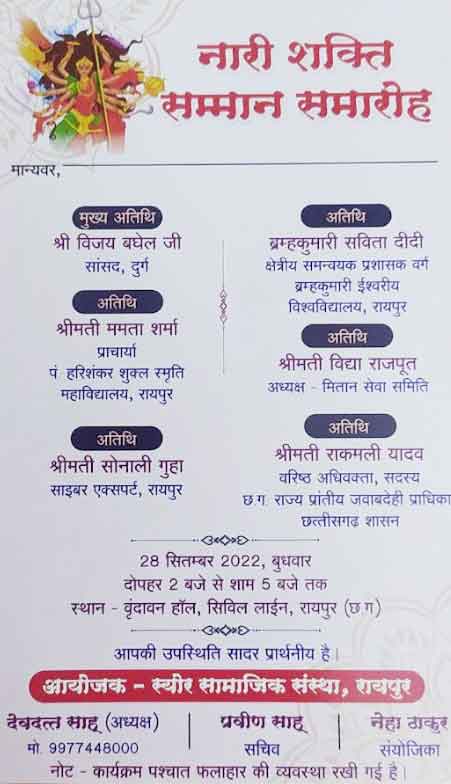 नारी शक्ति
सम्मान समारोह
मान्यवर,
मुख्य अतिथि
श्री विजय बघेल जी
सांसद, दुर्ग
अतिथि
श्रीमती ममता शर्मा
प्राचार्या
पं हरिशंकर शुक्ल स्मृति
महाविद्यालय, रायपुर
अतिथि
श्रीमती सोनाली गुहा
साइबर एक्सपर्ट, रायपुर
अतिथि
ब्रम्हकुमारी सविता दीदी
क्षेत्रीय समन्वयक प्रशासक वर्ग
ब्रम्हकुमारी ईश्वरीय
विश्वविद्यालय, रायपुर
अतिथि
श्रीमती विद्या राजपूत
अध्यक्ष - मितान सेवा समिति
अतिथि
श्रीमती राकमली यादव
वरिष्ठ अधिवक्ता, सदस्य
छ.ग. राज्य प्रांतीय जवाबदेही प्राधिका
छत्तीसगढ शासन
28 सितम्बर 2022, बुधवार
दोपहर 2 बजे से शाम 5 बजे तक
स्थान - वृंदावन हॉल, सिविल लाईन, रायपुर (छ.ग)
आपकी उपस्थिति सादर प्रार्थनीय है।
आयोजक - स्वीर सामाजिक संस्था, रायपुर
देवदत्त साहू (अध्यक्ष)
मो. 9977448000
प्रवीण साहू
सचिव
नेहा ठाकुर
संयोजिका
नोट - कार्यक्रम पश्चात फलाहार की व्यवस्था रखी गई है।